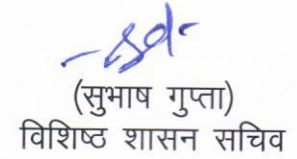 (सुभाष गुप्ता)
विशिष्ठ शासन सचिव